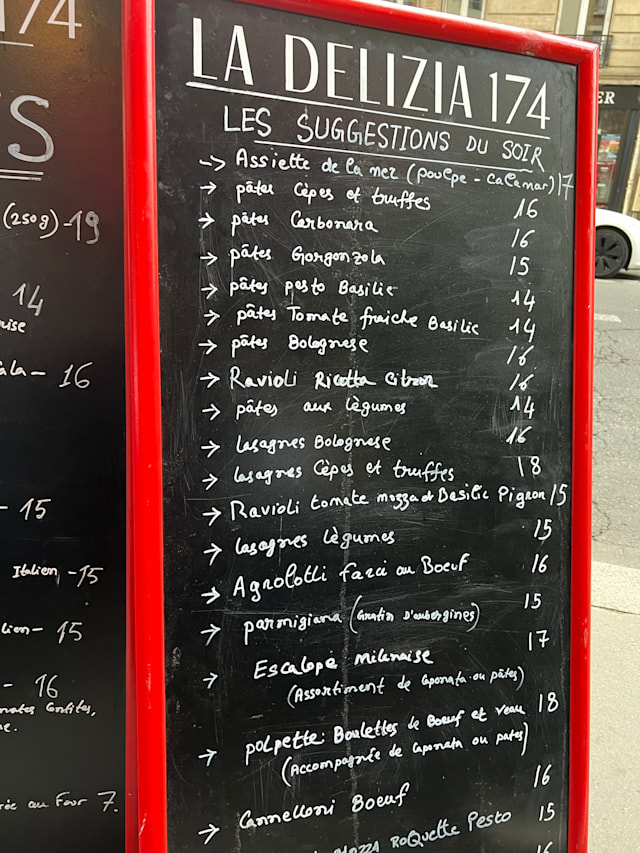 174
S
(250g) -19
14
uise
ala - 16
- 15
Italien -15
lien - 15
- 16
mates Confites,
e.
au Four 7.
LA DELIZIA 174
LES SUGGESTIONS DU SOIR
-> Assiette de la mer (poulpe - calamar) 17
→ pâtes Cèpes et truffes 16
→ pâtes Carbonara 16
→ pâtes Gorgonzola 15
→ pâtes pesto Basilic 14
→ pâtes Tomate fraiche Basilic 14
→ pâtes Bolognese 16
→ Ravioli Ricotta Citron 16
→ pâtes aux légumes 14
→ lasagnes Bolognese 16
→ lasagnes Cèpes et truffes 18
→ Ravioli tomate mozza et Basilic Pignon 15
→ lasagnes légumes 15
→ Agnolotti farci au Boeuf 16
→ parmigiana (Gratin D'aubergines) 15
→ Escalope milanaise 17
(Assortiment de Caponata ou pâtes)
→ polpette: Boulettes de Boeuf et veau 18
(Accompagnée de Caponata ou pates)
→ Cannelloni Boeuf 16
ROQuette Pesto 15
16